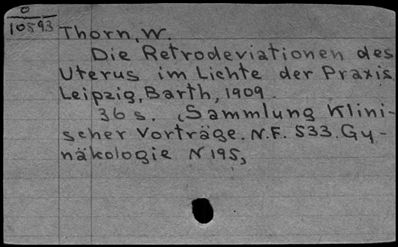 0
10593
Thorn, W.
Die Retrodeviationen des
Uterus im Lichte der Praxis
Leipzig, Barth, 1909.
36 s. (Sammlung Klini-
scher Vorträge. N.F. 533. Gy-
näkologie N 195,